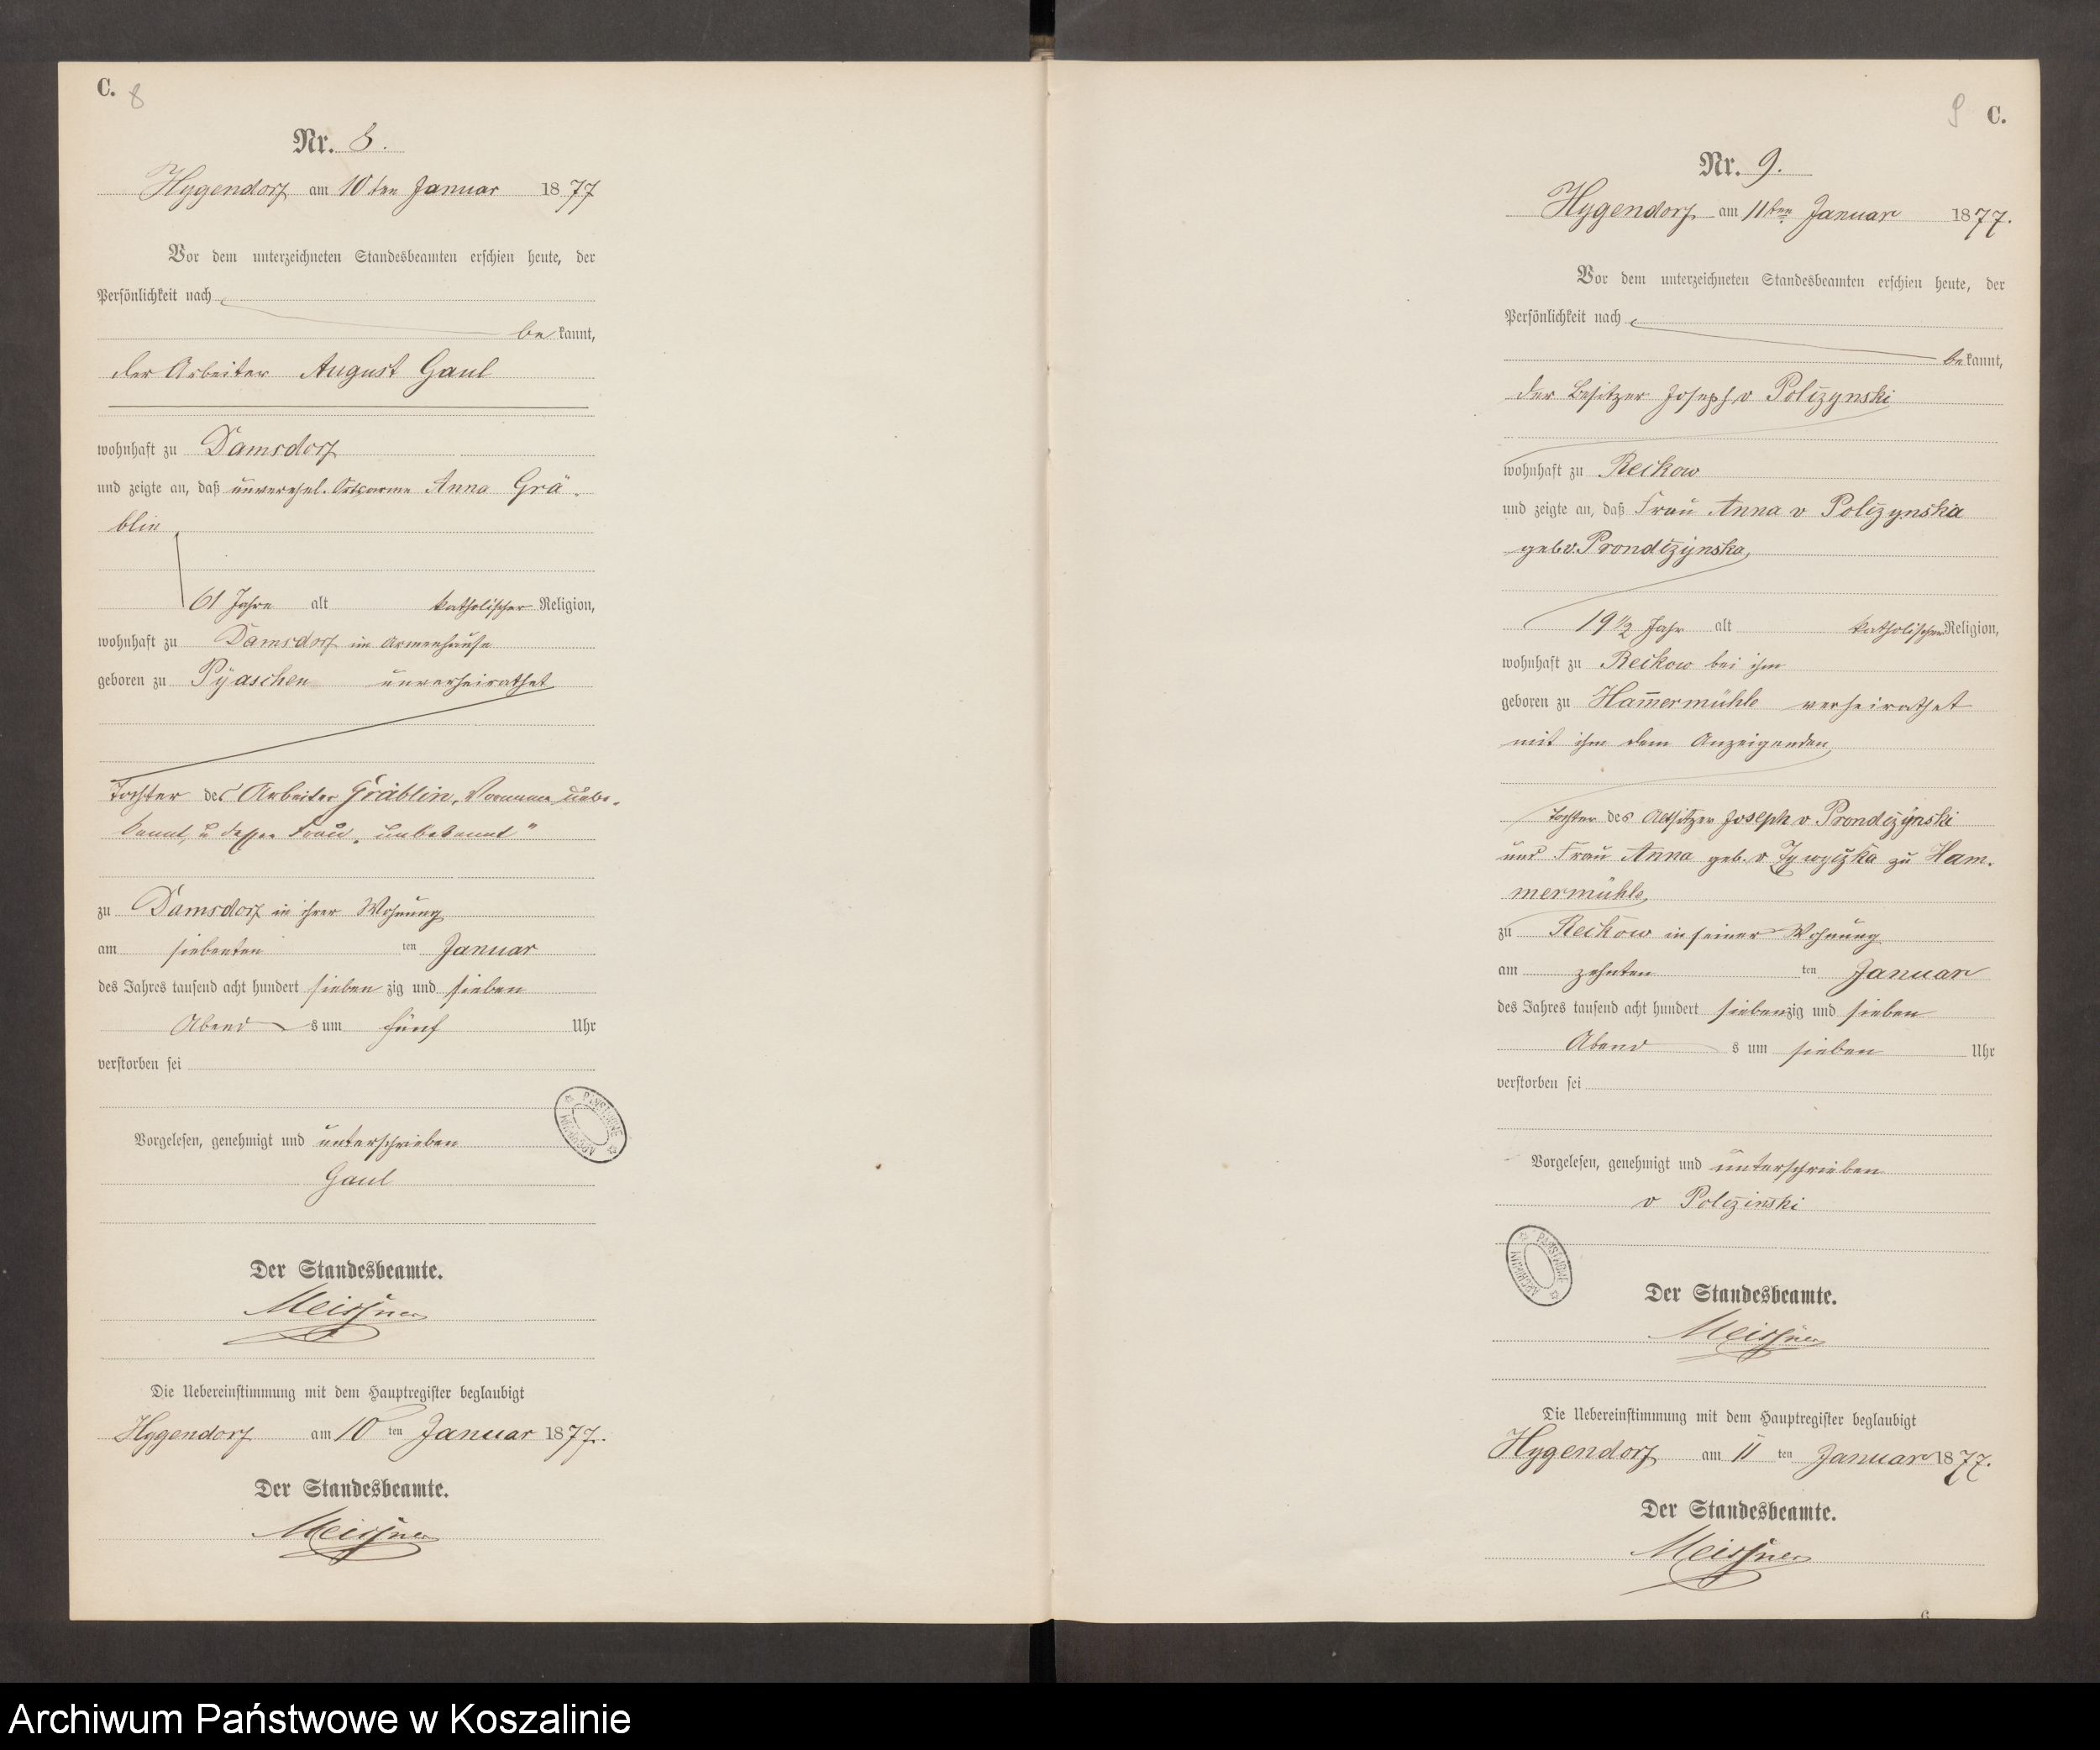 C. 8
Nr. 8.
Hygendorf am 10ten Januar 1877
Vor dem unterzeichneten Standesbeamten erschien heute, der
Persönlichkeit nach
bekannt,
der Arbeiter August Gaul
wohnhaft zu Damsdorf
und zeigte an, daß unverehel. Ortsarme Anna Grä-
blin,
61 Jahre alt katholischer Religion,
wohnhaft zu Damsdorf im Armenhause
geboren zu Pyaschen unverheirathet
Tochter des Arbeiter Gräblin, Vorname unbe-
kannt, u dessen Frau, unbekannt"
zu Damsdorf in ihrer Wohnung
am siebenten ten Januar
des Jahres tausend acht hundert siebenzig und sieben
Abends um fünf Uhr
verstorben sei
Vorgelesen, genehmigt und unterschrieben
Gaul
PAŃSTWOWE ARCHIWUM
Der Standesbeamte.
Meissner
Die Uebereinstimmung mit dem Hauptregister beglaubigt
Hygendorf am 10ten Januar 1877.
Der Standesbeamte.
Meissner
9 C.
Nr. 9.
Hygendorf am 11ten Januar 1877.
Vor dem unterzeichneten Standesbeamten erschien heute, der
Persönlichkeit nach
bekannt,
der Besitzer Joseph v Polczynski
wohnhaft zu Reckow
und zeigte an, daß Frau Anna v Polczynska
geb v. Prondczynska,
19 1/2 Jahr alt katholischer Religion,
wohnhaft zu Reckow bei ihm
geboren zu Ham̄ermühle verheirathet
mit ihm dem Anzeigenden,
Tochter des Altsitzer Joseph v Prondczynski
und Frau Anna geb. v zu Ham-
mermühle,
zu Reckow in seiner Wohnung
am zehnten ten Januar
des Jahres tausend acht hundert siebenzig und sieben
Abends um sieben Uhr
verstorben sei
Vorgelesen, genehmigt und unterschrieben
v Polczinski
PAŃSTWOWE ARCHIWUM
Der Standesbeamte.
Meissner
Die Uebereinstimmung mit dem Hauptregister beglaubigt
Hygendorf am 11ten Januar 1877.
Der Standesbeamte.
Meissner
Archiwum Państwowe w Koszalinie